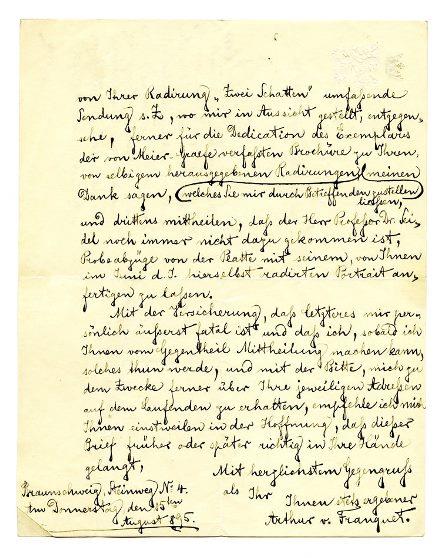 von Ihrer Radirung „Zwei Schatten" umfaßende
Sendung s. Z., wo mir in Aussicht gestellt, entgegen-
sehe, ferner für die Dedication des Exemplares
der von Meier-Graefe verfaßten Brochüre zu Ihren,
von selbigem herausgegebenen Radirungen meinen
Dank sagen, welches Sie mir durch Betreffenden zustellen
ließen,
und drittens mittheilen, daß der Herr Profeßor Dr. Sei-
del noch immer nicht dazu gekommen ist,
Probeabzüge von der Platte mit seinem, von Ihnen
im Juni d. J. hierselbst radirten Portrait an-
fertigen zu laßen.
Mit der Versicherung, daß letzteres mir per-
sönlich äußerst fatal ist und daß ich, sobald ich
Ihnen vom Gegentheil Mittheilung machen kann,
solches thun werde, und mit der Bitte, mich zu
dem Zwecke ferner über Ihre jeweiligen Adreßen
auf dem Laufenden zu erhalten, empfehle ich mich
Ihnen einstweilen in der Hoffnung, daß dieser
Brief früher oder später richtig in Ihre Hände
gelangt,
Mit herzlichstem Gegengruss
als Ihr
Ihnen stets ergebener
Arthur v. Franquet.
Braunschweig, Steinweg No 4.
im Donnerstag, den 15ten
August 895.